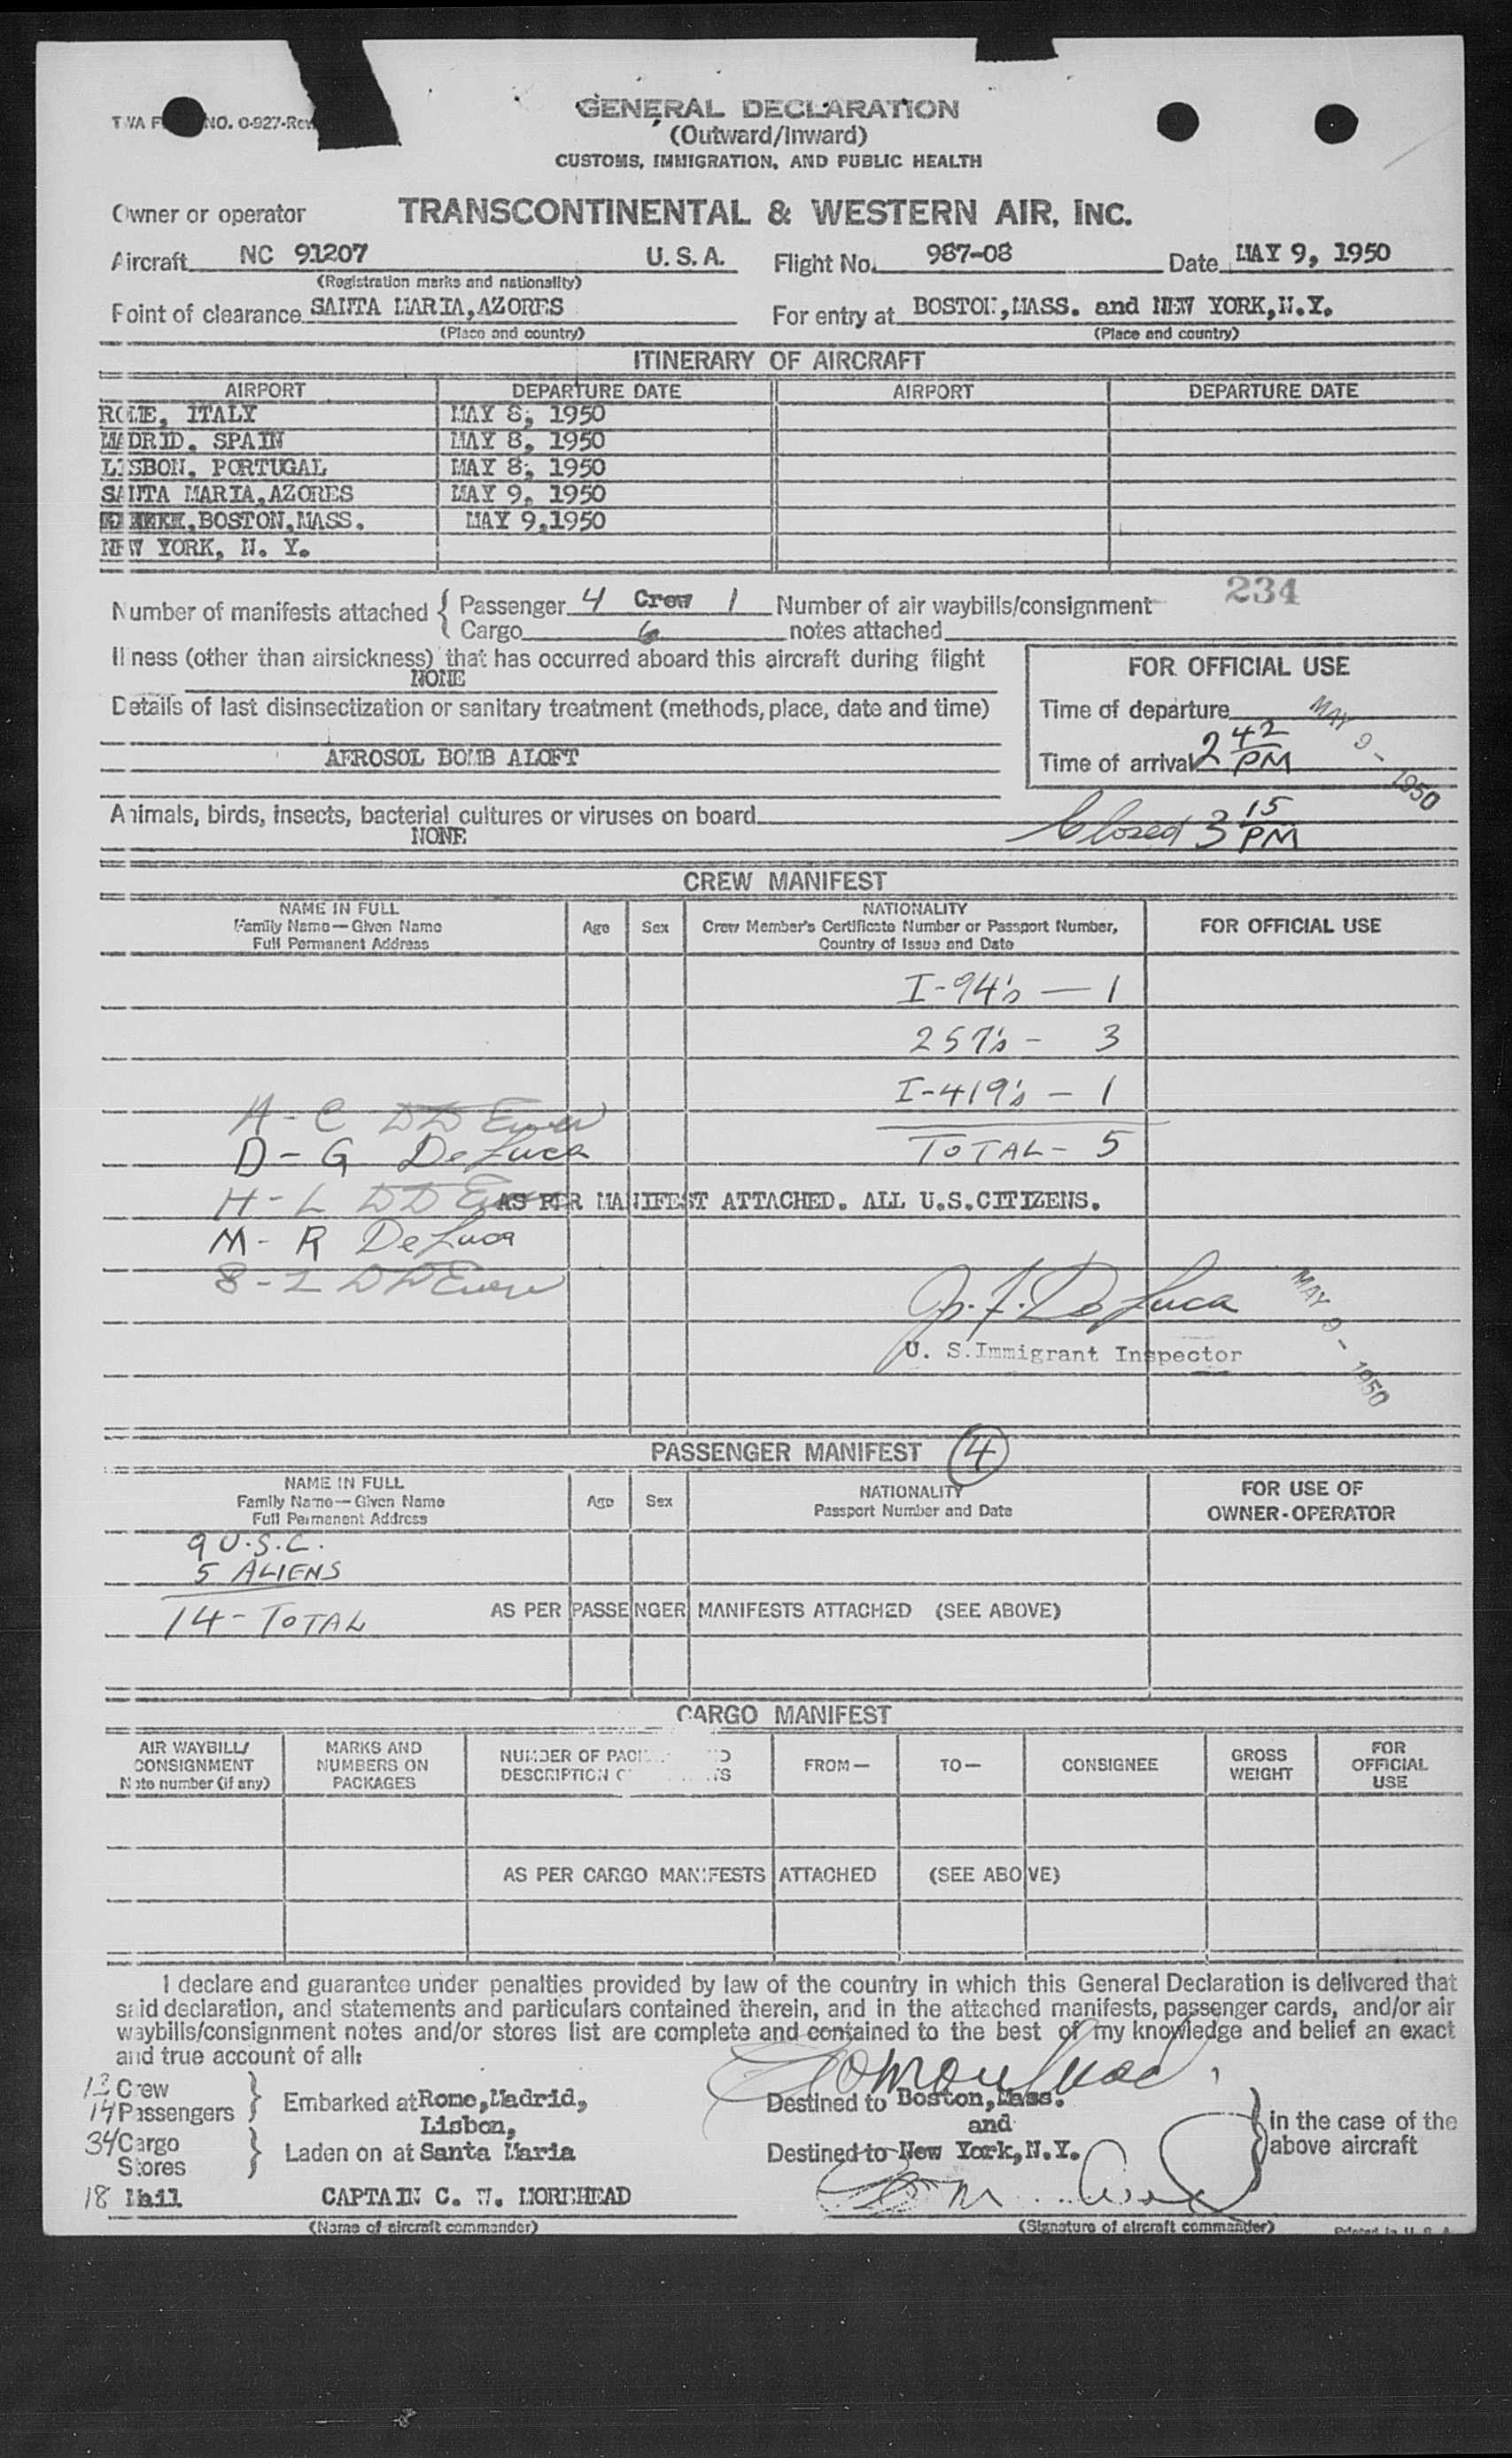 GENERAL DECLARATION
(Outward/Inward)
CUSTOMS, IMMIGRATION, AND PUBLIC HEALTH
TWA F NO. O-927-Rev
Owner or operator TRANSCONTINENTAL & WESTERN AIR, INC.
Aircraft NC 91207 U. S. A. Flight No. 987-08 Date MAY 9, 1950
(Registration marks and nationality)
Point of clearance SANTA MARIA,AZORES For entry at BOSTON,MASS. and NEW YORK,N.Y.
(Place and country) (Place and country)
ITINERARY OF AIRCRAFT
AIRPORT DEPARTURE DATE AIRPORT DEPARTURE DATE
ROME, ITALY MAY 8, 1950
MADRID. SPAIN MAY 8, 1950
LISBON. PORTUGAL MAY 8, 1950
SANTA MARIA,AZORES MAY 9, 1950
BOSTON,MASS. MAY 9,1950
NEW YORK, N. Y.
234
Number of manifests attached { Passenger 4 Crew 1 Number of air waybills/consignment
Cargo 6 notes attached
Illness (other than airsickness) that has occurred aboard this aircraft during flight
NONE
FOR OFFICIAL USE
Details of last disinsectization or sanitary treatment (methods, place, date and time)
Time of departure
AEROSOL BOMB ALOFT
Time of arrival 2 42 PM
MAY 9 - 1950
Animals, birds, insects, bacterial cultures or viruses on board
NONE
Closed 3 15 PM
CREW MANIFEST
NAME IN FULL
Family Name—Given Name
Full Permanent Address
Age Sex
NATIONALITY
Crew Member's Certificate Number or Passport Number,
Country of Issue and Date
FOR OFFICIAL USE
I-94's — 1
257's - 3
I-419's - 1
A - C
TOTAL - 5
D - G DeLuca
H - L
AS PER MANIFEST ATTACHED. ALL U.S.CITIZENS.
M - R DeLuca
De Luca
U. S. Immigrant Inspector
MAY 9 - 1950
PASSENGER MANIFEST 4
NAME IN FULL
Family Name—Given Name
Full Permanent Address
Age Sex
NATIONALITY
Passport Number and Date
FOR USE OF
OWNER-OPERATOR
9 U.S.C.
5 ALIENS
14 - TOTAL
AS PER PASSENGER MANIFESTS ATTACHED (SEE ABOVE)
CARGO MANIFEST
AIR WAYBILL/
CONSIGNMENT
Note number (if any)
MARKS AND
NUMBERS ON
PACKAGES
NUMBER OF
DESCRIPTION
FROM—
TO—
CONSIGNEE
GROSS
WEIGHT
FOR
OFFICIAL
USE
AS PER CARGO MANIFESTS ATTACHED (SEE ABOVE)
I declare and guarantee under penalties provided by law of the country in which this General Declaration is delivered that
said declaration, and statements and particulars contained therein, and in the attached manifests, passenger cards, and/or air
waybills/consignment notes and/or stores list are complete and contained to the best of my knowledge and belief an exact
and true account of all:
Crew
14 Passengers } Embarked at Rome,Madrid, Destined to Boston,Mass.
Lisbon, and
34 Cargo
Stores } Laden on at Santa Maria Destined to New York,N.Y.
in the case of the
above aircraft
18 Mail CAPTAIN C. W. MOREHEAD
(Name of aircraft commander) (Signature of aircraft commander)
Printed in U. S. A.